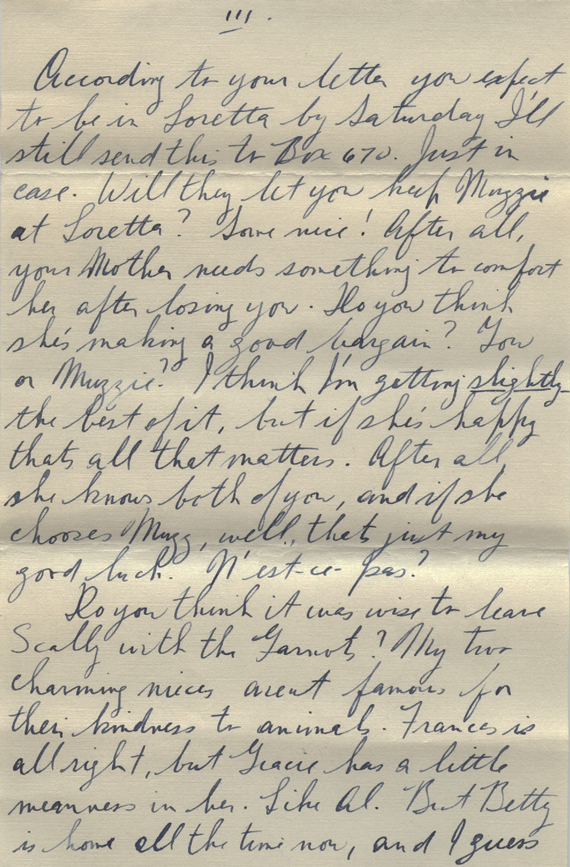 III.
According to your letter you expect
to be in Loretta by Saturday I'll
still send this to Box 670. Just in
case. Will they let you keep Muzzie
at Loretta? Some nice! After all,
your Mother needs something to comfort
her after losing you. Do you think
she's making a good bargain? You
or Muzzie? I think I'm getting slightly
the best of it, but if she's happy
thats all that matters. After all,
she knows both of you, and if she
chooses Muzz, well, that's just my
good luck. N'est-ce-pas?
Do you think it was wise to leave
Scally with the Garnots? My two
charming nieces arent famous for
their kindness to animals. Frances is
all right, but Gracie has a little
meanness in her. Like Al. But Betty
is home all the time now, and I guess